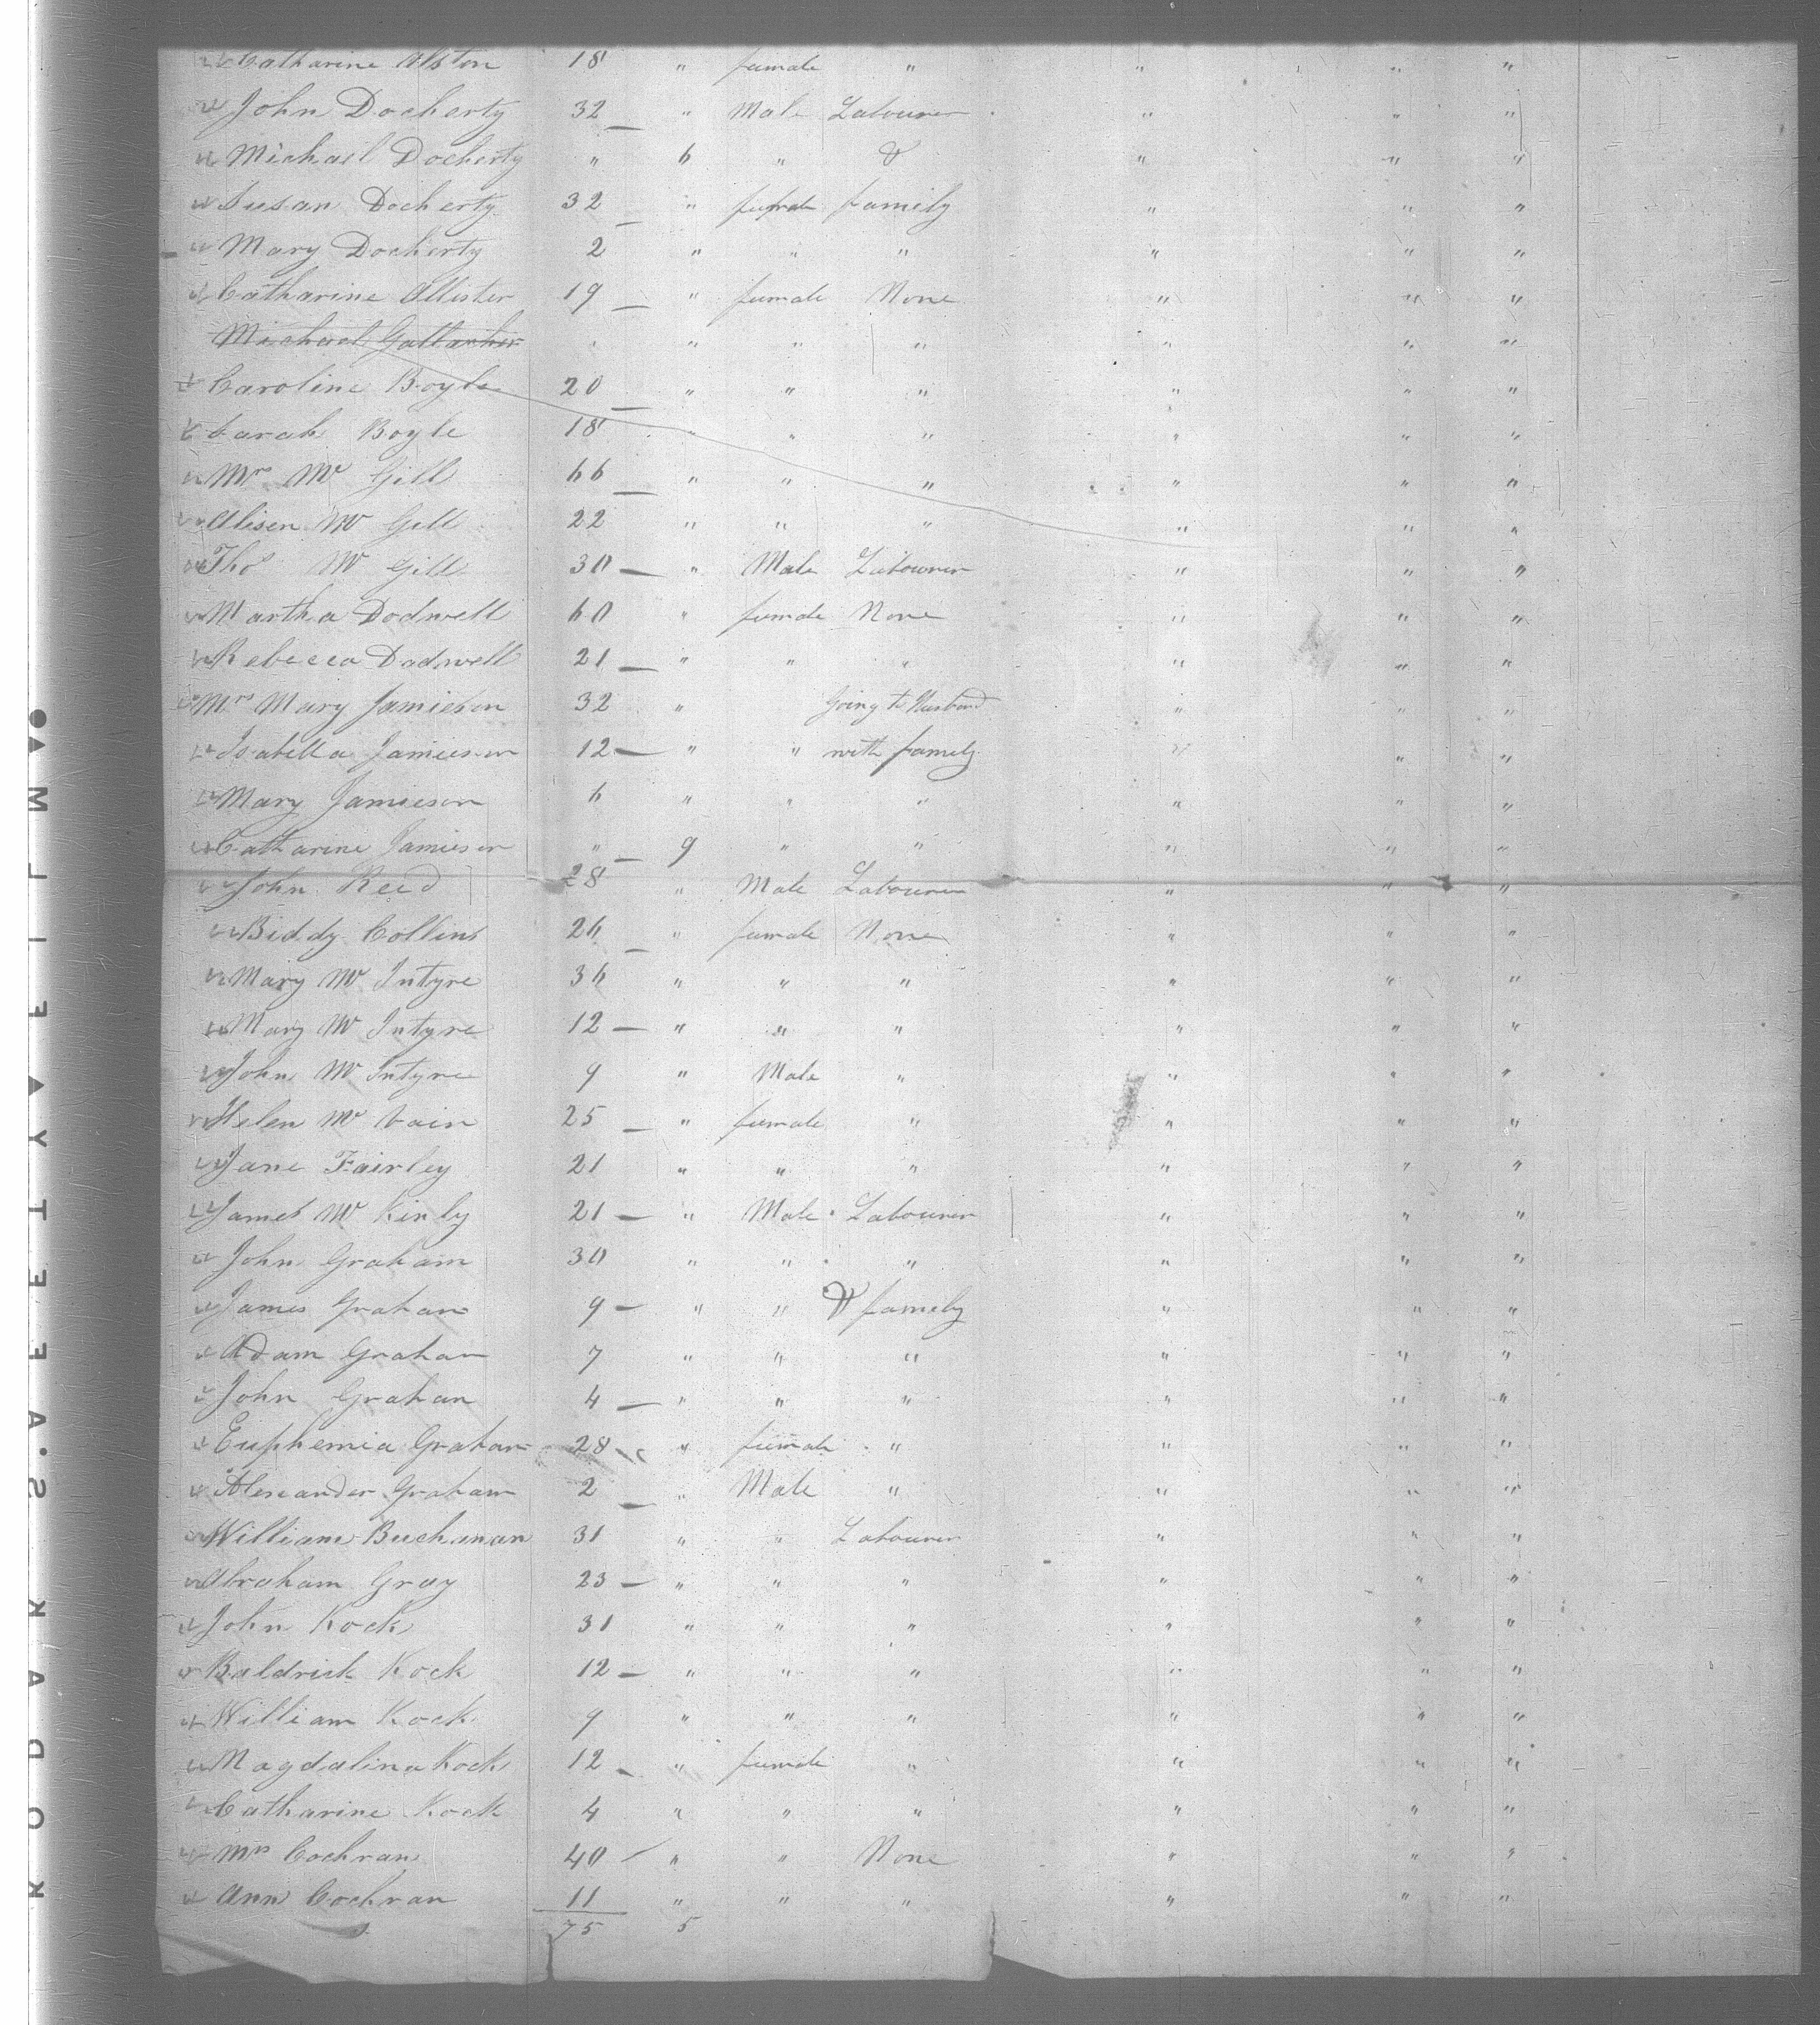 Catharine Alston 18 " female " " " "
John Docherty 32 " Male Labourer " " "
Michael Docherty " 6 " & " " "
Susan Docherty 32 " female family " " "
Mary Docherty 2 " " " " " "
Catharine Allister 19 " female None " " "
Michael Gallagher " " " " " "
Caroline Boyle 20 " " " " " "
Sarah Boyle 18 " " " " " "
Mrs Mc Gill 66 " " " " " "
Alisen Mc Gill 22 " " " " " "
Thos Mc Gill 30 " Male Labourer " " "
Martha Dodwell 60 " female None " " "
Rebecca Dodwell 21 " " " " " "
Mrs Mary Jamieson 32 " Going to Husband " " "
Isabella Jamieson 12 " " with family " " "
Mary Jamieson 6 " " " " " "
Catharine Jamieson " 9 " " " " "
John Reed 28 " Male Labourer " " "
Biddy Collins 26 " female None " " "
Mary Mc Intyre 36 " " " " " "
Mary Mc Intyre 12 " " " " " "
John Mc Intyre 9 " Male " " " "
Helen Mc 25 " female " " " "
Jane Fairley 21 " " " " " "
James Mc Kinly 21 " Male Labourer " " "
John Graham 30 " " " " " "
James Graham 9 " " & family " " "
Adam Graham 7 " " " " " "
John Graham 4 " " " " " "
Euphemia Graham 28 " female " " " "
Alexander Graham 2 " Male " " " "
William Buchanan 31 " " Labourer " " "
Abraham Gray 23 " " " " " "
John Kock 31 " " " " " "
Baldrick Kock 12 " " " " " "
William Kock 9 " " " " " "
Magdalina Kock 12 " female " " " "
Catharine Kock 4 " " " " " "
Mrs Cochran 40 " " None " " "
Ann Cochran 11 " " " " " "
75 5
KODAK S.A.F.E.T.Y FILM